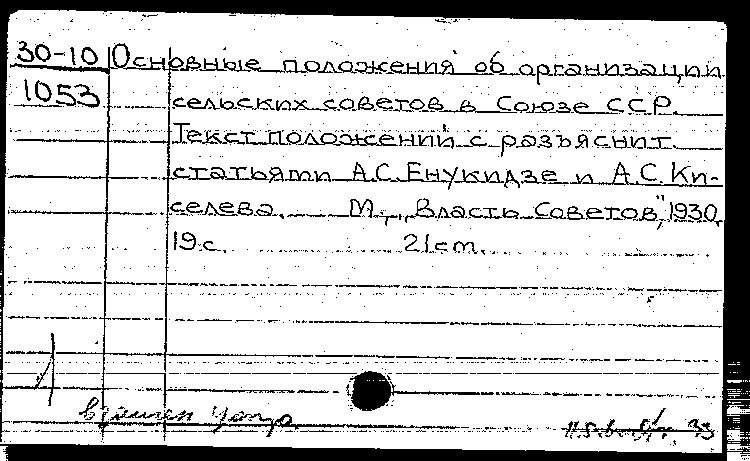 30-10
1053
Основные положения об организации
сельских советов в Союзе ССР.
Текст положений с разъяснит.
статьями А.С. Енукидзе и А.С. Ки-
селева. М., „Власть Советов", 1930.
19 с. 21 cm.